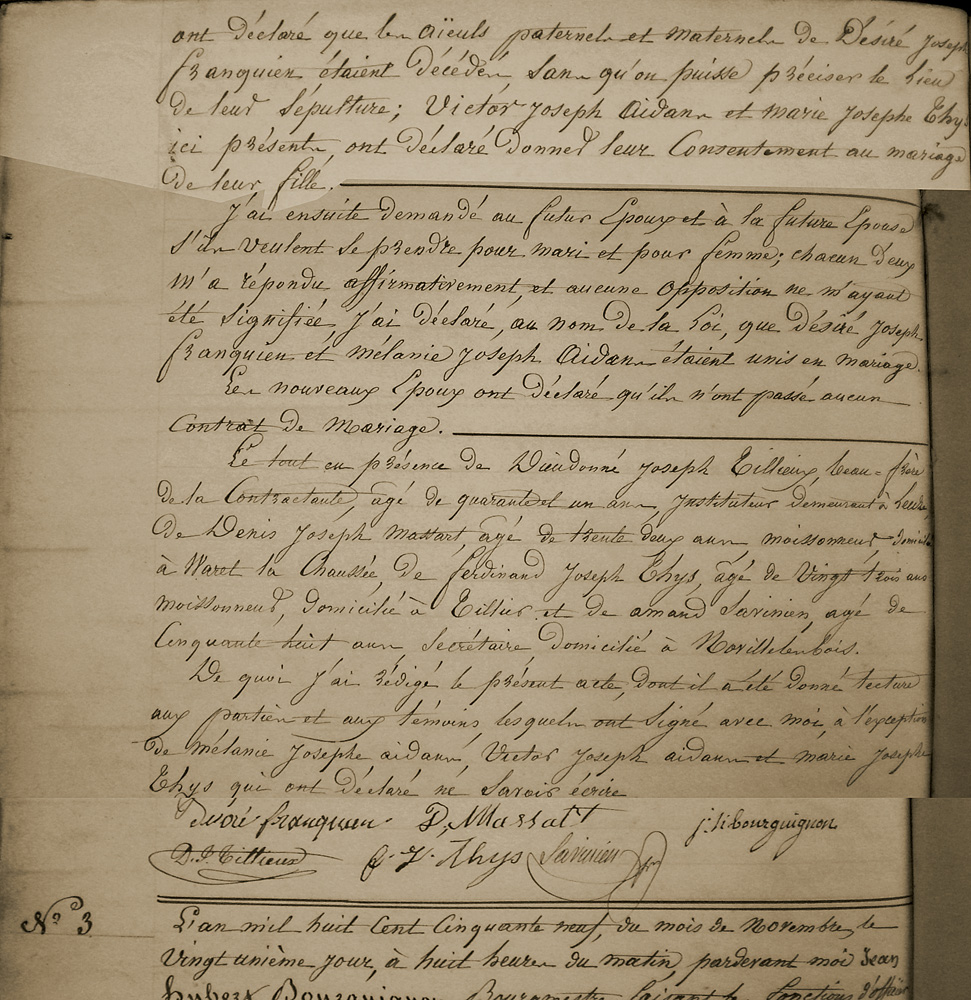 ont déclaré que les aïeuls paternels et maternels de Désiré Joseph
franquien étaient décédés sans qu'on puisse préciser le Lieu
de leur sépulture; Victor Joseph Aidans et marie Josephe Thys
ici présents ont déclaré donner leur Consentement au mariage
de leur fille.
J'ai ensuite demandé au futur Epoux et à la future Epouse
s'ils veulent se prendre pour mari et pour femme; chacun d'eux
m'a répondu affirmativement, et aucune opposition ne m'ayant
été signifiée, j'ai déclaré, au nom de la Loi, que désiré Joseph
franquien et mélanie Joseph Aidans étaient unis en mariage.
Les nouveaux Epoux ont déclaré qu'ils n'ont passé aucun
Contrat de Mariage.
Le tout en présence de Dieudonné Joseph Tillieux, beau=frère
de la Contractante, agé de quarante et un ans, Instituteur demeurant à
de Denis Joseph Massart, agé de trente deux ans moissonneur domicilié
à Waret la Chaussée, de ferdinand Joseph Thys, âgé de Vingt trois ans
moissonneur, domicilié à Tillier et de amand Savinien, agé de
Cinquante huit ans Secrétaire domicilié à Novillelesbois.
De quoi j'ai rédigé le présent acte, dont il a été donné lecture
aux parties et aux témoins lesquels ont signé avec moi, à l'exception
de mélanie Josephe aidans, Victor Joseph aidans et marie Josephe
Thys qui ont déclaré ne savoir écrire
Désiré franquien D. Massart j. h bourguignon
D. J. Tillieux f. J. Thys Savinien
N° 3
L'an mil huit Cent Cinquante neuf, du mois de Novembre, le
Vingt unième jour, à huit heures du matin, pardevant moi Jean
hubert Bourguignon Bourgmestre faisant les fonctions d'offic